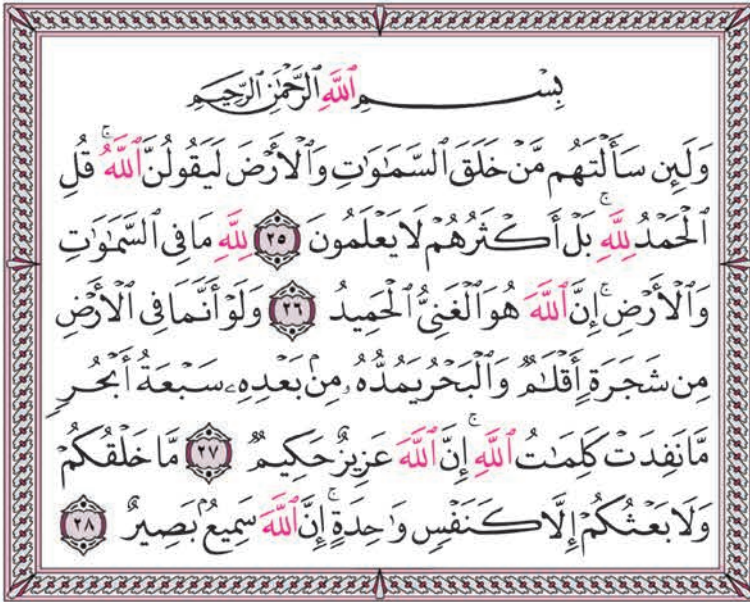 بِسْمِ ٱللَّهِ ٱلرَّحْمَٰنِ ٱلرَّحِيمِ
وَلَئِن سَأَلْتَهُم مَّنْ خَلَقَ ٱلسَّمَٰوَٰتِ وَٱلْأَرْضَ لَيَقُولُنَّ ٱللَّهُ ۚ قُلِ
ٱلْحَمْدُ لِلَّهِ ۚ بَلْ أَكْثَرُهُمْ لَا يَعْلَمُونَ ٢٥ لِلَّهِ مَا فِى ٱلسَّمَٰوَٰتِ
وَٱلْأَرْضِ ۚ إِنَّ ٱللَّهَ هُوَ ٱلْغَنِىُّ ٱلْحَمِيدُ ٢٦ وَلَوْ أَنَّمَا فِى ٱلْأَرْضِ
مِن شَجَرَةٍ أَقْلَٰمٌ وَٱلْبَحْرُ يَمُدُّهُۥ مِنۢ بَعْدِهِۦ سَبْعَةُ أَبْحُرٍ
مَّا نَفِدَتْ كَلِمَٰتُ ٱللَّهِ ۗ إِنَّ ٱللَّهَ عَزِيزٌ حَكِيمٌ ٢٧ مَّا خَلْقُكُمْ
وَلَا بَعْثُكُمْ إِلَّا كَنَفْسٍ وَٰحِدَةٍ ۗ إِنَّ ٱللَّهَ سَمِيعٌۢ بَصِيرٌ ٢٨